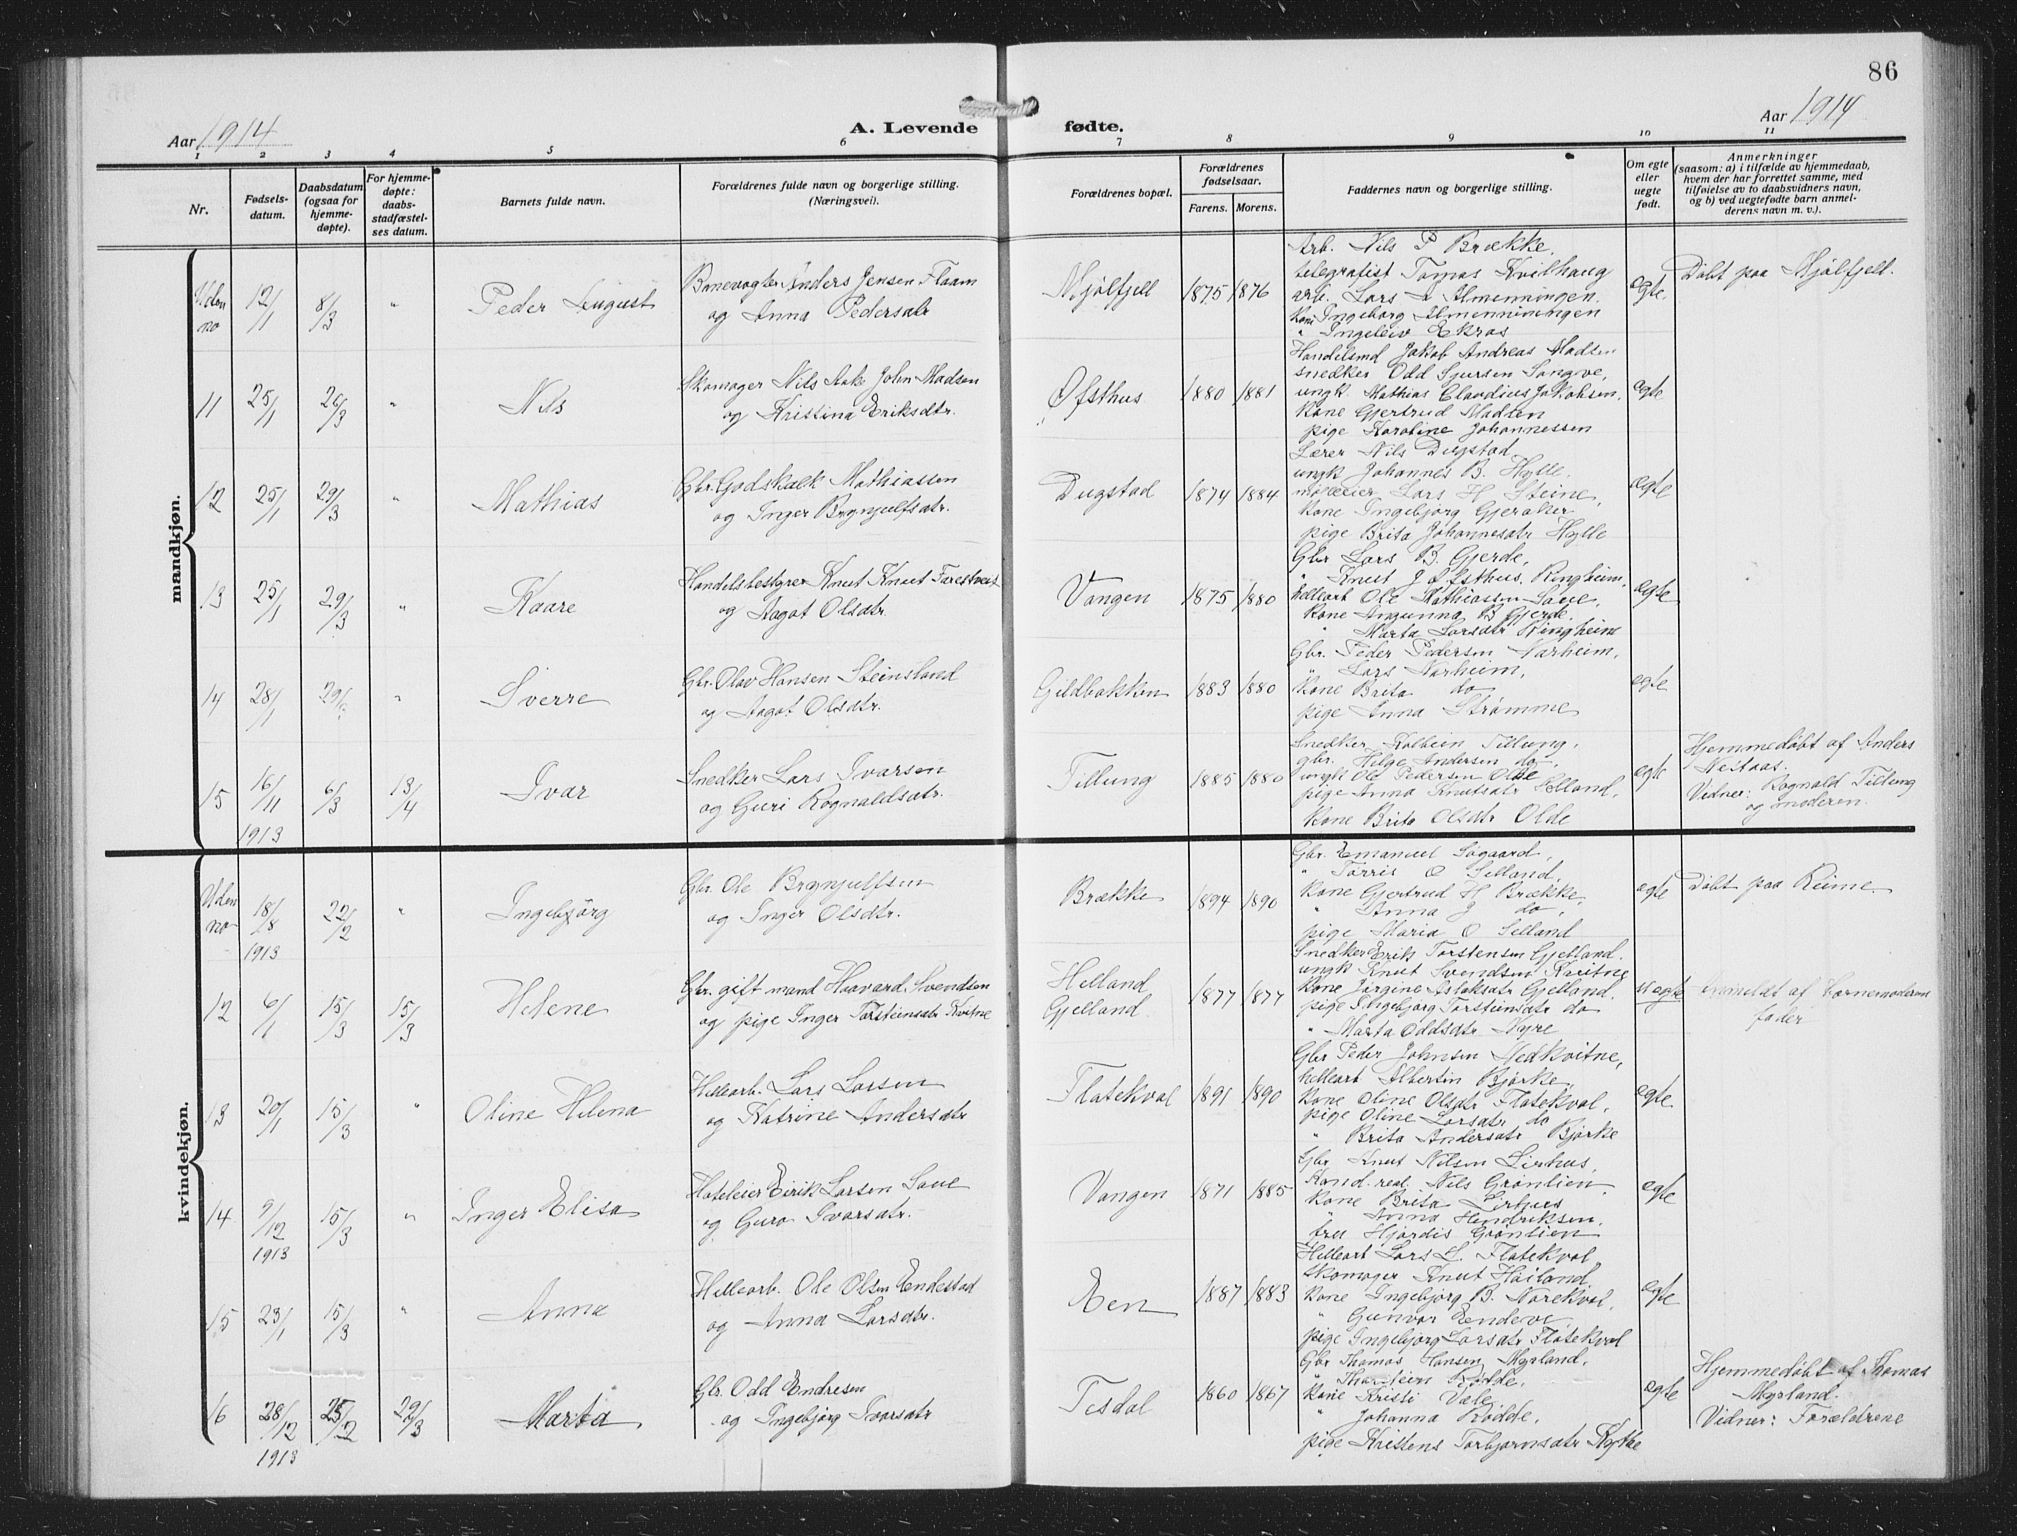 86
Aar 1914
A. Levende fødte.
Aar 1914
1 2 3 4 5 6 7 8 9 10 11
Nr.
Fødsels-
datum.
Daabsdatum
(ogsaa for
hjemme-
døpte).
For hjemme-
døpte:
daabs-
stadfæstel-
ses datum.
Barnets fulde navn.
Forældrenes fulde navn og borgerlige stilling.
(Næringsvei).
Forældrenes bopæl.
Forældrenes
fødselsaar.
Farens. Morens.
Faddernes navn og borgerlige stilling.
Om egte
eller
uegte
født.
Anmerkninger
(saasom: a) i tilfælde av hjemmedaab,
hvem der har forrettet samme, med
tilføielse av to daabsvidners navn,
og b) ved uegtefødte barn anmel-
derens navn m. v.).
mandkjøn.
Uden no 12/1 8/3 " Peder August
Banevogter Anders Jensen Flaam
og Anna Pedersdtr
Mjølfjell 1875 1876
Arb. Nils P Brække,
telegrafist Tomas Kvilhaug
arb. Lars A Almenningen.
Kone Ingeborg Almenningen
" Ingeleiv Ekras
egte
Døbt paa Mjølfjell.
11 25/1 26/3 " Nils
Skomager Nils Aak John Madsen
og Kristina Eriksdtr.
Øfsthus 1880 1881
Handelsmd Jakob Andreas Madsen
snedker Odd Sjursen Sangve,
ungk. Mathias Claudius Jakobsen,
Kone Gjertrud Madsen
pige Karoline Johannessen
egte
12 25/1 29/3 " Mathias
Gbr. Godskalk Mathiassen
og Inger Brynjulfsdtr.
Dugstad 1874 1884
Lærer Nils Dugstad
ungk Johannes B. Hylle,
mølleeier Lars H Steine,
Kone Ingebjørg Gjeraker
pige Brita Johannesdtr Hylle
egte
13 25/1 29/3 " Kaare
Handelsbestyrer Knut Knut Farestveit
og Aagot Olsdtr.
Vangen 1875 1880
Gbr Lars B. Gjerde,
" Knut J Øfsthus, Ringheim,
hellearb Ole Mathiassen Save,
Kone Ingunna B Gjerde,
" Marta Larsdtr Ringheim
egte
14 28/1 29/3 " Sverre
Gbr. Olav Hansen Steinsland
og Aagot Olsdtr.
Gildbakken 1883 1880
Gbr. Peder Pedersen Narheim,
" Lars Narheim,
Kone Brita do
pige Anna Strømme
egte
15 16/11 1913 6/3 13/4 Ivar
Snedker Lars Ivarsen
og Guri Rognaldsdtr.
Tillung 1885 1880
Snedker Kolbein Tillung,
gbr. Helge Andersen do,
ungk Ole Pedersen Olde
pige Anna Knutsdtr Helland,
Kone Brita Olsdtr Olde
egte
Hjemmedøbt af Anders
Nestaas.
Vidner: Rognald Tillung
og moderen.
kvindekjøn.
Uden no 18/8 1913 22/2 " Ingebjørg
Gbr Ole Brynjulfsen
og Inger Olsdtr.
Brække 1894 1890
Gbr. Emanuel Søgaard,
" Torris O Selland,
Kone Gjertrud H Brække,
" Anna J do,
pige Maria O Selland
egte
Døbt paa Reime.
12 6/1 15/3 15/3 Helene
Gbr. gift mand Haavard Svendsen
og pige Inger Torsteinsdtr Kvitne
Helland
Gjelland 1877 1877
Snedker Erik Torstensen Gjelland.
ungk Knut Svendsen Kvitne
Kone Jørgine Aslaksdtr Gjelland.
pige Ingebjørg Torsteinsdtr do
" Marta Oddsdtr. Hyre
uegte
Anmeldt af barnemoderens
fader
13 20/1 15/3 " Oline Helena
Hellearb. Lars Larsen
og Katrine Andersdtr
Flatekval 1891 1890
Gbr Peder Johnsen Nedkvitne,
hellearb Albertin Bjørke,
Kone Oline Olsdtr Flatekval,
pige Oline Larsdtr do
" Brita Andersdtr Bjørke
egte
14 9/12 1913 15/3 " Inger Elisa
Hoteleier Eirik Larsen Save
og Guro Ivarsdtr.
Vangen 1871 1885
Gbr Knut Nilsen Lirhus,
Kand. real. Nils Grønlien,
Kone Brita Lirhus
" Anna Hendriksen,
frøs Hjørdis Grønlien
egte
15 23/1 15/3 " Anna
Hellearb. Ole Olsen Endestad
og Anna Larsdtr.
Een 1887 1883
Hellearb Lars L. Flatekval,
skomager Knut Høiland,
Kone Ingebjørg B. Norekval,
" Gunvor Endeve,
pige Ingebjørg Larsdtr Flatekval
egte
16 28/12 1913 25/2 29/3 Marta
Gbr. Odd Endresen
og Ingebjørg Ivarsdtr
Tesdal 1860 1867
Gbr Thomas Hansen Myrland.
" Thorstein Rødde,
Kone Kristi Vale
" Johanna Rødde,
pige Kristens Torbjørnsdtr Kytke
egte
Hjemmedøbt af Thomas
Myrland.
Vidner: Forældrene